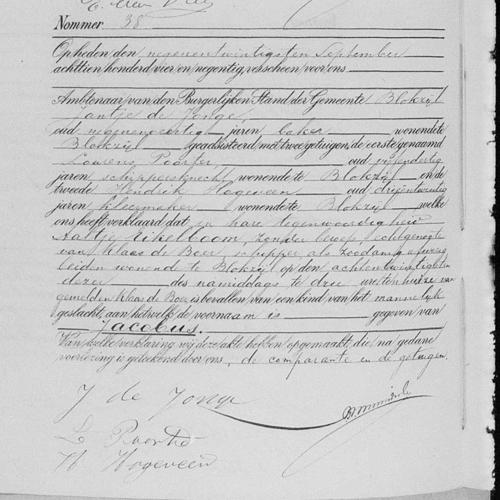 Nommer 38
Op heden den negenentwintigsten September
achttien honderd vier en negentig, verscheen voor ons
Ambtenaar van den Burgerlijken Stand der Gemeente Blokzijl
Jantje de Jonge,
oud negenenveertig jaren, baker wonende te
Blokzijl geadsisteerd met twee getuigen, de eerste genaamd
Lourens Poorter, oud vijfendertig
jaren, schippersknecht, wonende te Blokzijl en de
tweede Hendrik Hogeveen oud drieëntwintig
jaren, kleermaker wonende te Blokzijl welke
ons heeft verklaard dat in hare tegenwoordigheid
Aaltje Eikelboom, zonder beroep, echtgenoot
van Klaas de Boer, schipper als zoodanig
wonende te Blokzijl op den achtentwintigsten
dezer des namiddags te drie ure ten huize van
gemelden Klaas de Boer is bevallen van een kind van het mannelijk
geslacht, aan hetwelk de voornaam is gegeven van
Jacobus.
Van welke verklaring wij deze akte hebben opgemaakt, die, na gedane
voorlezing is geteekend door ons, de comparante en de getuigen.
J de Jonge
L Poorter
H Hogeveen